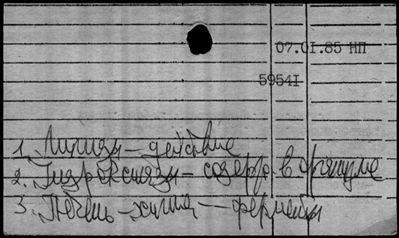 07.01.85 НП
59541
1. Лигазы – действие
2. Гидроксилазы – содерж. в организме
3. Печень – химия – ферменты